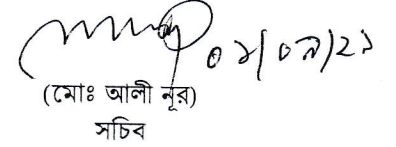 ০১/০৯/২১
(মোঃ আলী নূর)
সচিব